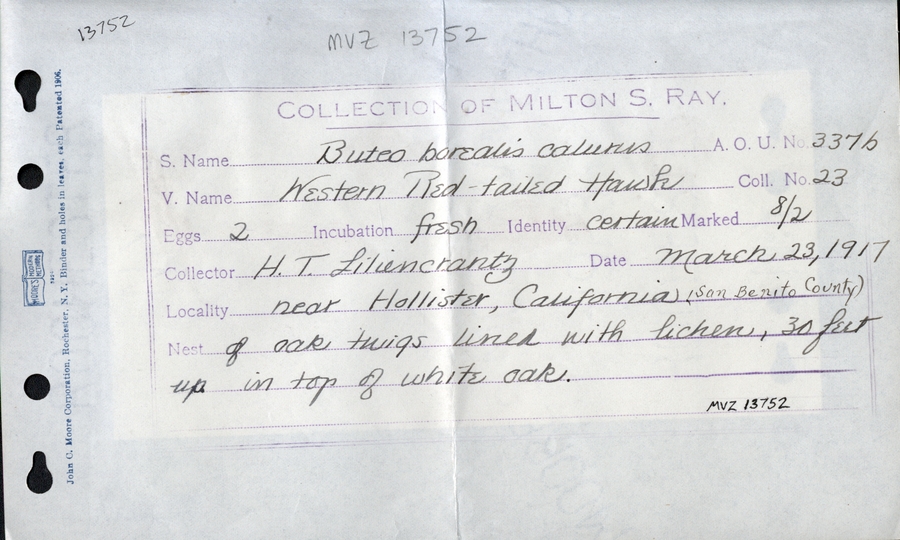 13752
MVZ 13752
COLLECTION OF MILTON S. RAY.
S. Name Buteo borealis calurus A. O. U. No. 337b
V. Name Western Red-tailed Hawk Coll. No. 23
Eggs 2 Incubation fresh Identity certain Marked 8/2
Collector H. T. Liliencrantz Date March 23, 1917
Locality near Hollister, California, (San Benito County)
Nest of oak twigs lined with lichen, 30 feet
up in top of white oak.
MVZ 13752
John C. Moore Corporation, Rochester, N. Y. Binder and holes in leaves, each Patented 1906.
MOORE'S MODERN METHODS